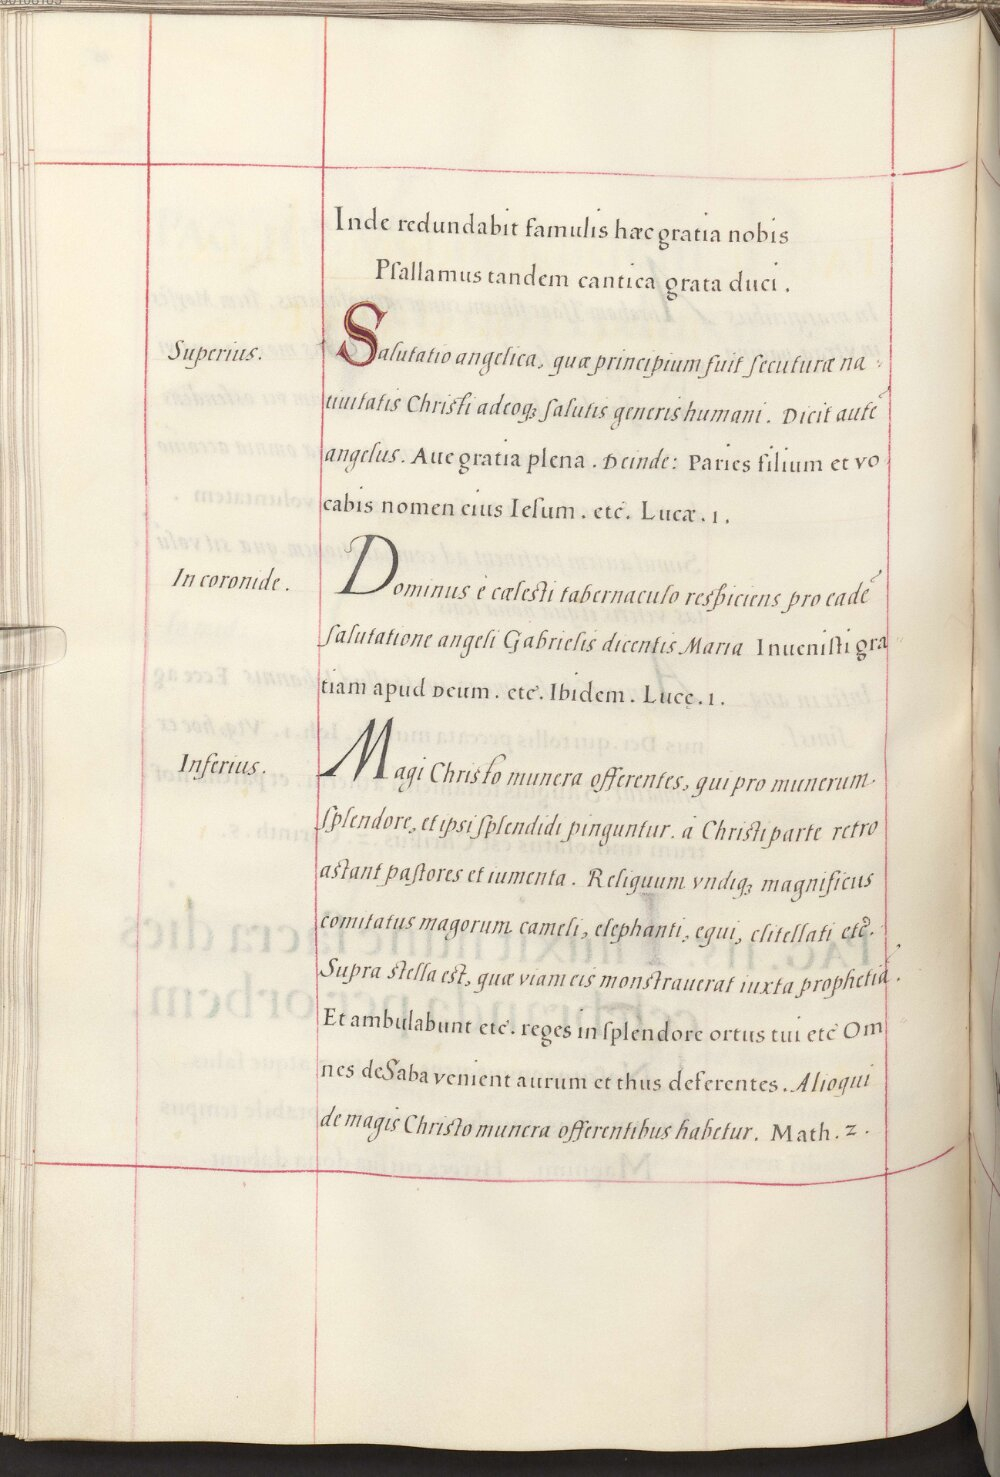 Inde redundabit famulis hæc gratia nobis
Pſallamus tandem cantica grata duci.
Superius.
Salutatio angelica, quæ principium fuit ſecuturæ na
uiuitatis Chriſti adeoq; ſalutis generis humani. Dicit autē
angelus. Aue gratia plena. Deinde: Paries filium et vo
cabis nomen eius Ieſum. etc̄. Lucæ. 1.
In coronide.
Dominus è cæleſti tabernaculo reſpiciens pro eadē
ſalutatione angeli Gabrielis dicentis Maria Inueniſti gra
tiam apud Deum. etc̄. Ibidem. Lucę. 1.
Inferius.
Magi Chriſto munera offerentes, qui pro munerum
ſplendore, et ipſi ſplendidi pinguntur. à Chriſti parte retro
astant paſtores et iumenta. Reliquum vndiq; magnificus
comitatus magorum cameli, elephanti, equi, clitellati etc̄.
Supra ſtella eſt, quæ viam eis monſtrauerat iuxta prophetiā.
Et ambulabunt etc̄. reges in ſplendore ortus tui etc̄ Om
nes de Saba venient aurum et thus deferentes. Alioqui
de magis Chriſto munera offerentibus habetur. Math. 2.